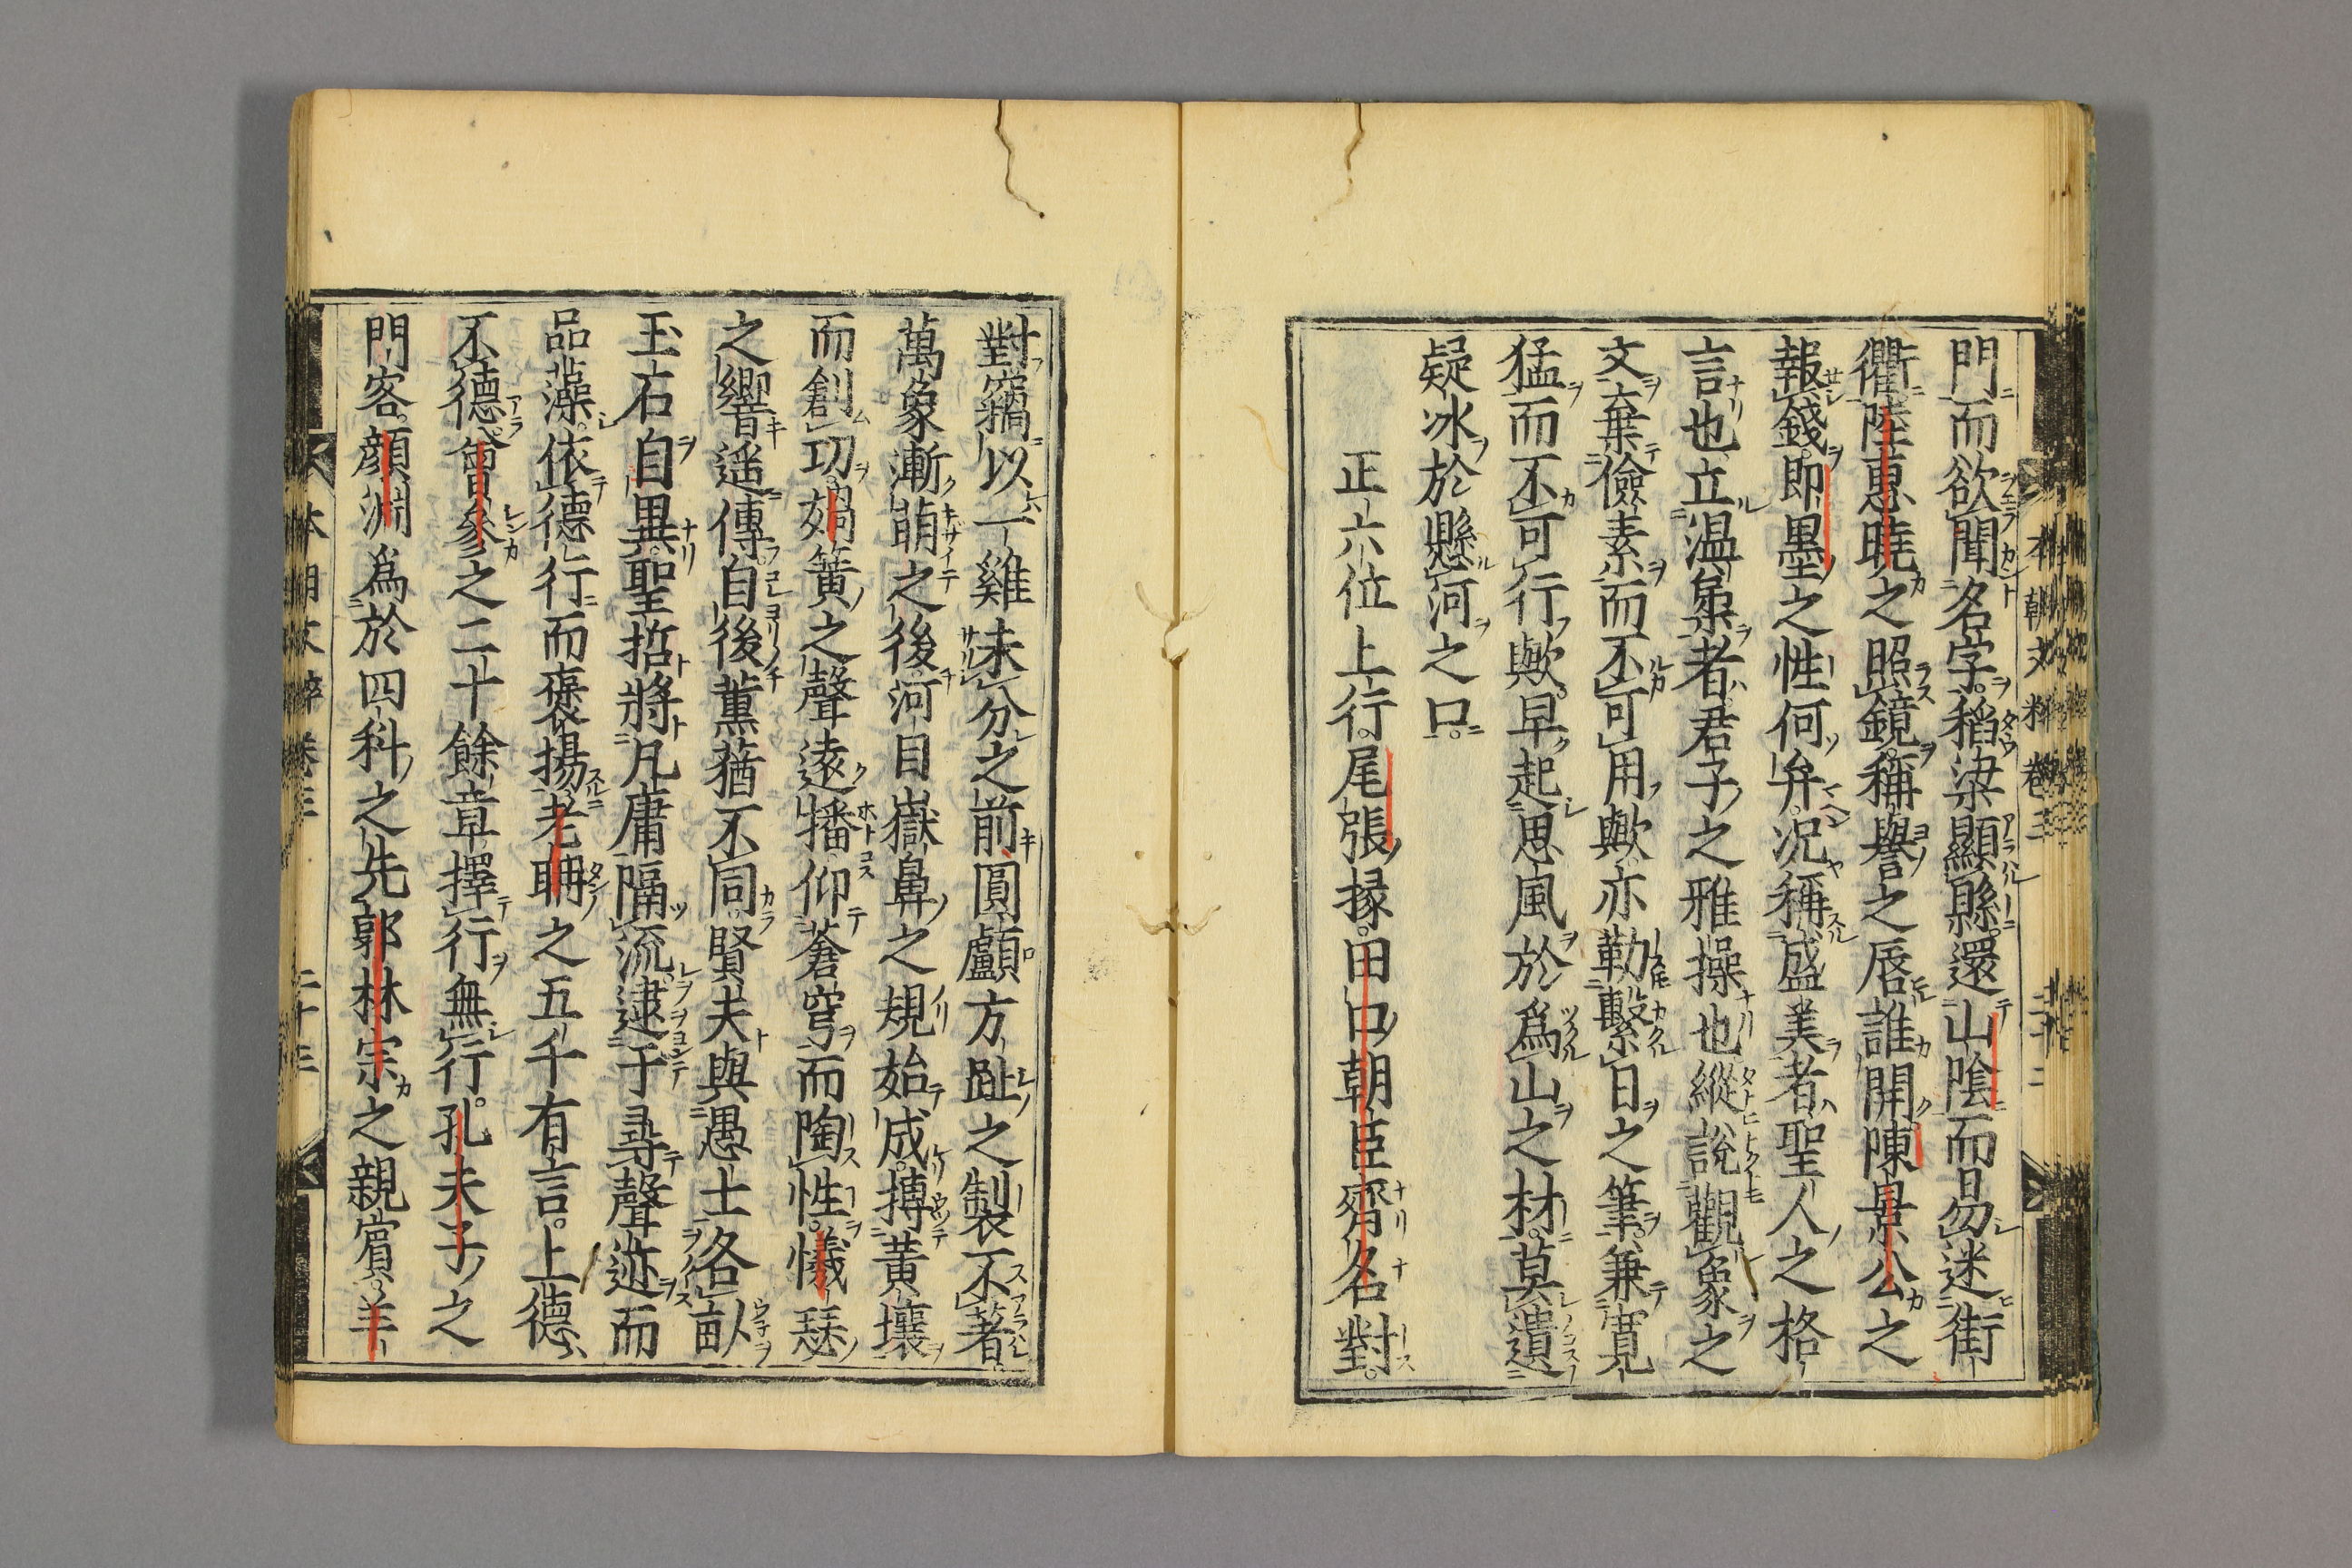 門而欲聞名字稻粱顯縣還山陰而易迷街
衢陸惠曉之照鏡稱譽之唇誰開陳㬌公之
報錢即墨之性何弁況稱盛美者聖人之格
言也立温枲者君子之雅操也縱說觀象之
文棄儉素而不可用歟亦勒繫日之筆兼寛
猛而不可行歟早起思風於爲山之材莫遺
疑冰於懸河之口
正六位上行尾張掾田口朝臣齊名對
對竊以一雞未分之前圓顱方趾之製不著
萬象漸萌之後河目嶽鼻之規始成搏黃壤
而創功媧簧之聲遠播仰蒼穹而陶性犧瑟
之響遥傳自後薰蕕不同賢夫與愚士各畝
玉石自異聖哲將凡庸隔流逮于尋聲迹而
品藻依德行而褒揚老聃之五千有言上德
不德曾參之二十餘章擇行無行孔夫子之
門客顔淵爲於四科之先郭林宗之親賔羊
本朝文粹卷三